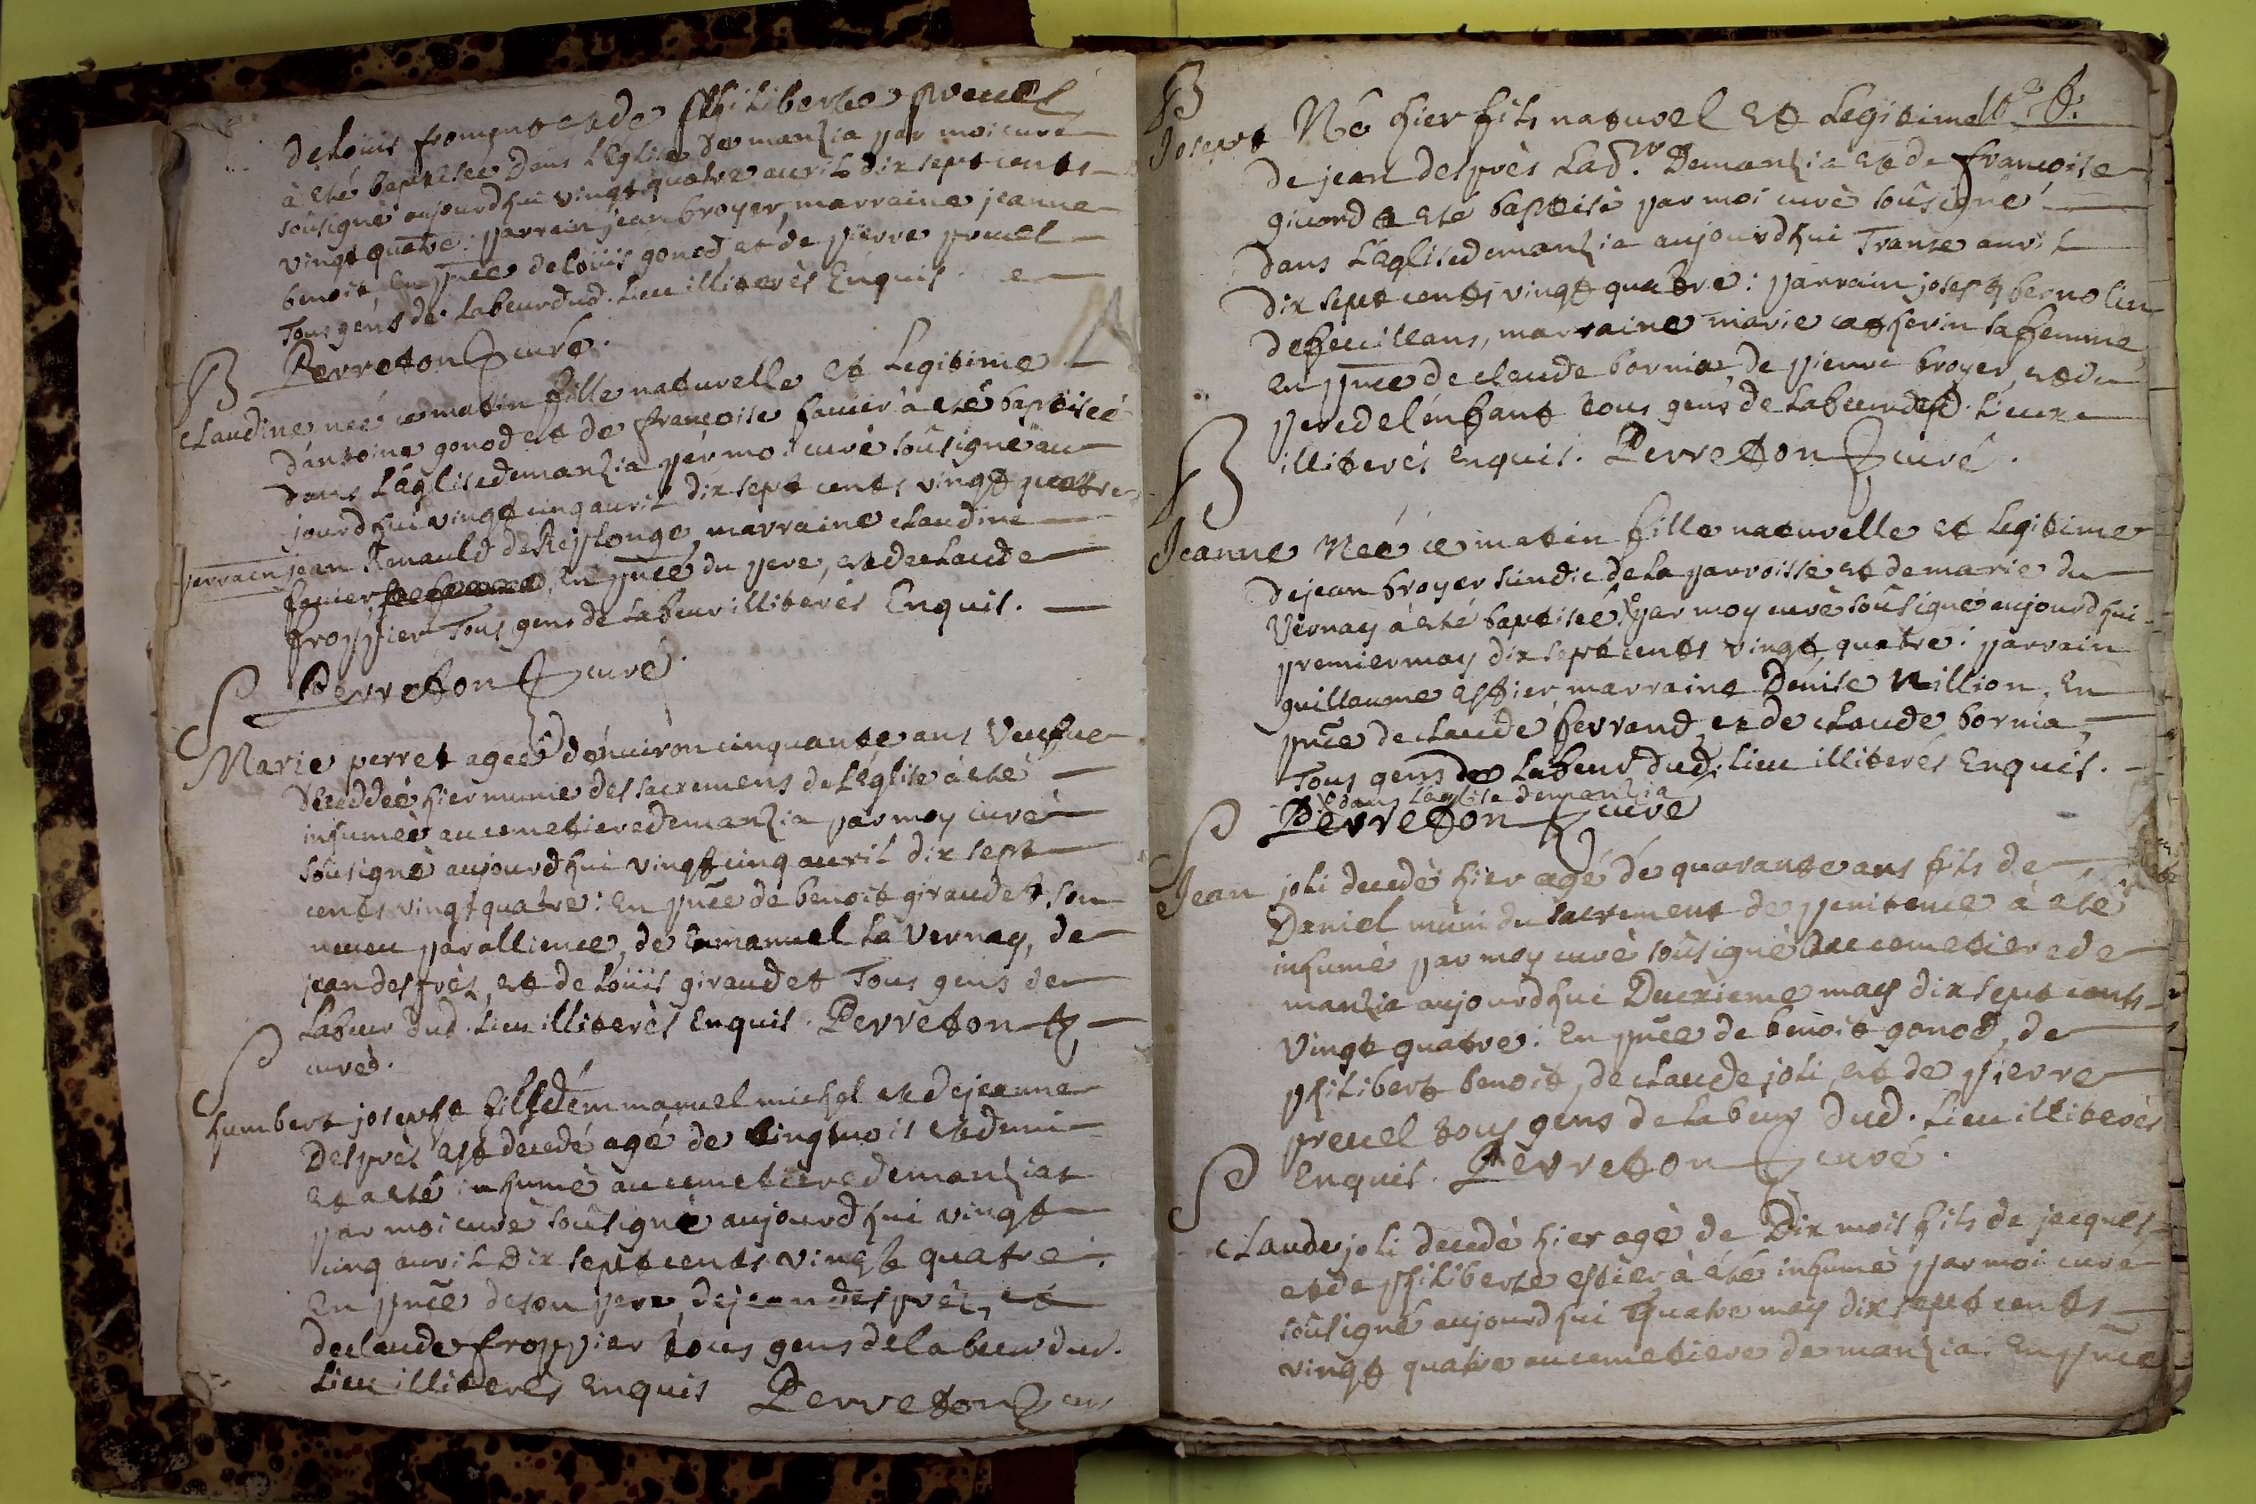 de Loüis froment et de philiberte preuel
à esté baptisée dans L'Eglise de manzia par moi curé
sousigné aujourdhui vingt quatre auril dix sept cents
vingt quatre: parrain jean broyer, marraine jeanne
benoit en pñce de Loüis gonod et de pierre preuel
Tous gens de Labeur dud. Lieu illiterés Enquis.
Perreton curé.
B
Claudine neé ce matin fille naturelle et Legitime
d'antoine gonod et de françoise fauier à esté baptiseé
dans L'église de manzia par moi curé sousigné au
jourdhui vingt cinq auril dix sept cents vingt quatre
parrain jean Renauld de Replonge, marraine Claudine
fauier, en pñce du pere, et de claude
froppier Tous gens de Labeur illiterés Enquis.
Perreton curé
S
Marie perret ageé d'enuiron cinquante ans Veufue
deceddeé hier munie des sacremens de L'église à esté
inhumeé au cemetiere de manzia par moy curé
sousigné aujourdhui vingt cinq auril dix sept
cents vingt quatre: en pñce de benoit giraudet, son
neueu par allience, de Emanuel La Vernay, de
jean desprès, et de Loüis giraudet Tous gens de
Labeur dud. Lieu illiterés Enquis. Perreton
curé.
S
humbert josephe fils d'emmanuel michel et de jeanne
Desprès est decedé agé de cinq mois et demi
et a esté inhumé au cemetiere de manziat
par moi curé sousigné aujourdhui vingt
cinq auril Dix sept cents vingt quatre:
En pñce de son pere, de jean desprès, et
de claude froppier tous gens de labeur dud.
Lieu illiterés enquis Perreton cur
B
Josept Né hier fils naturel et Legitime
de jean desprès Lad.r Demanzia et de françoise
giuord a esté baptisé par moi curé sousigné
dans L'église de manzia aujourdhui Trante auril
dix sept cents vingt quatre: parrain joseph bernolin
defeuillans, marraine marie catherin sa femme
en pñce de claude bornia de pierre broyer, et du
pere de l'enfant tous gens de Labeur desd. Lieux
illiterés enquis. Perreton curé.
B
Jeanne Neé ce matin fille naturelle et Legitime
de jean broyer sindic de La parroisse et de marie du
Vernay à esté baptiseé par moy curé sousigné aujourdhui
premier may dix sept cents vingt quatre: parrain
guillaume estier marraine Denise Million, En
pñce de claude ferrand, et de claude bornia,
Tous gens de Labeur dud. lieu illiterés Enquis.
dans L'église demanzia
Perreton curé
S
Jean joli decedé hier agé de quarante ans fils de
Daniel muni du sacrement de penitence à esté
inhumé par moy curé sousigné au cemetiere de
manzia aujourdhui Deuxieme may dix sept cents
Vingt quatre: En pñce de benoit gonod, de
philibert benoit, de claude joli, et de pierre
preuel tous gens de Labeur dud. Lieu illiterés
Enquis. Perreton curé.
S
Claude joli decedé hier agé de Dix mois fils de jacques
et de philiberte estier à esté inhumé par moi curé
sousigné aujourdhui quatre may dix sept cents
vingt quatre au cemetiere de manzia: En pñce